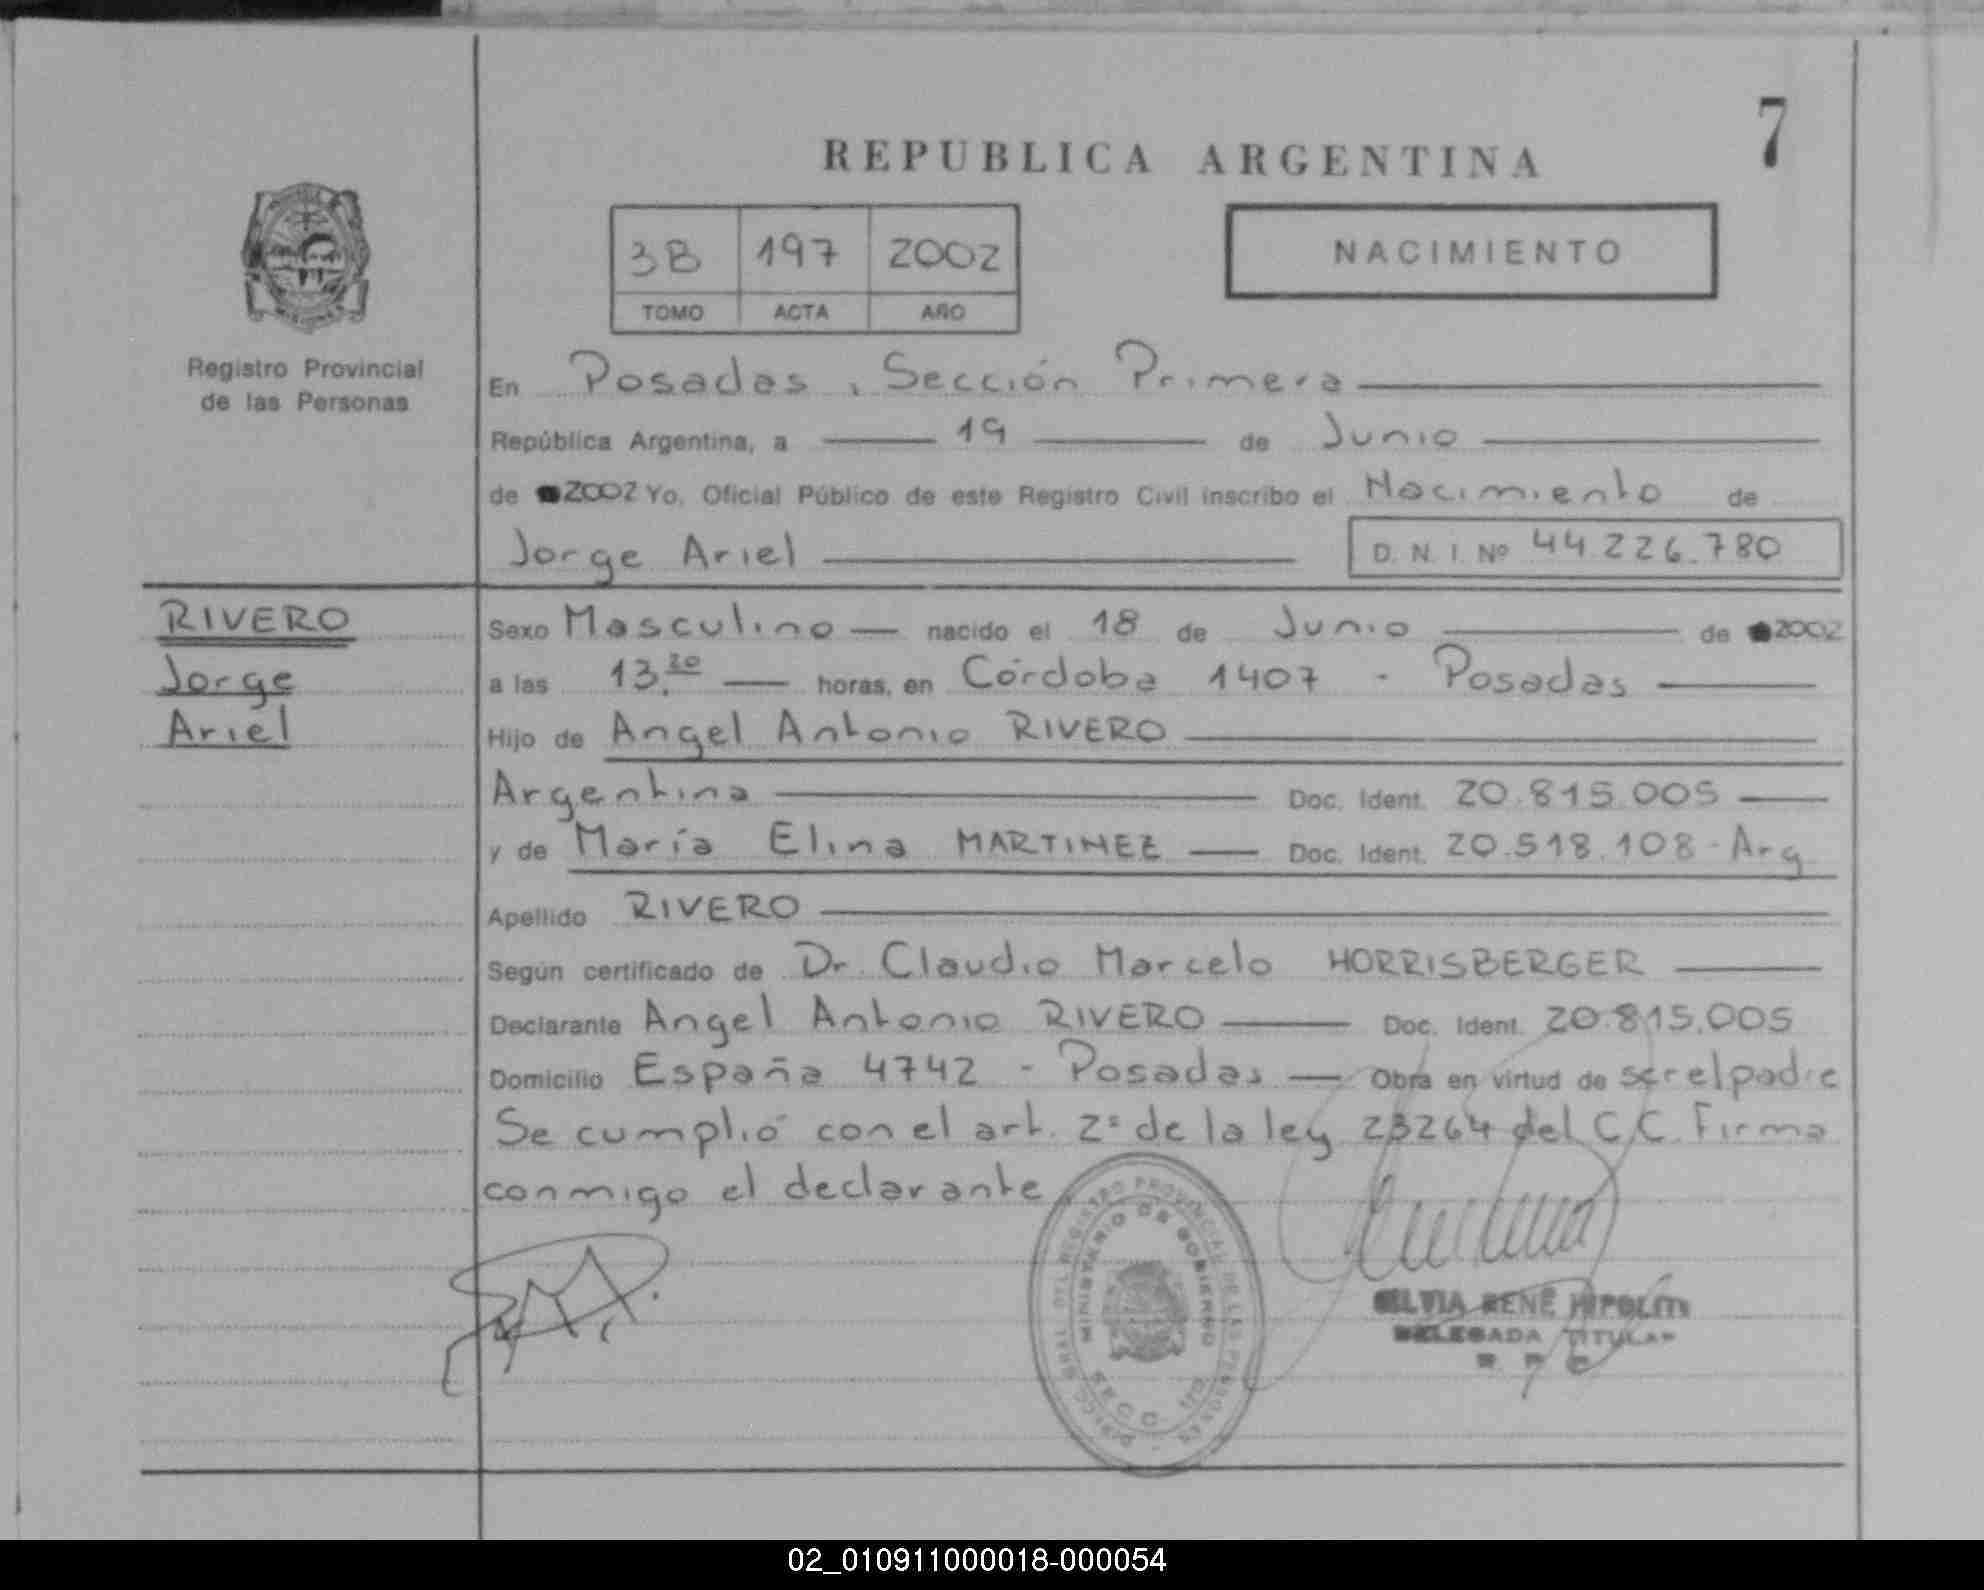 7
REPUBLICA ARGENTINA
3B 197 2002
TOMO ACTA AÑO
NACIMIENTO
MISIONES
Registro Provincial
de las Personas
En Posadas, Sección Primera
República Argentina, a 19 de Junio
de 2002 Yo, Oficial Público de este Registro Civil inscribo el Nacimiento de
Jorge Ariel D. N. I. Nº 44.226.780
RIVERO
Jorge
Ariel
Sexo Masculino nacido el 18 de Junio de 2002
a las 13.20 horas, en Córdoba 1407 - Posadas
Hijo de Angel Antonio RIVERO
Argentina Doc. Ident. 20.815.005
y de María Elina MARTINEZ Doc. Ident. 20.518.108 - Arg
Apellido RIVERO
Según certificado de Dr. Claudio Marcelo HORRISBERGER
Declarante Angel Antonio RIVERO Doc. Ident. 20.815.005
Domicilio España 4742 - Posadas Obra en virtud de ser el padre
Se cumplió con el art. 2º de la ley 23264 del C.C. Firma
conmigo el declarante
REGISTRO PROVINCIAL DE LAS PERSONAS
MINISTERIO DE GOBIERNO
SECC. 1ra
SILVIA RENE HIPOLITI
DELEGADA TITULAR
02_010911000018-000054